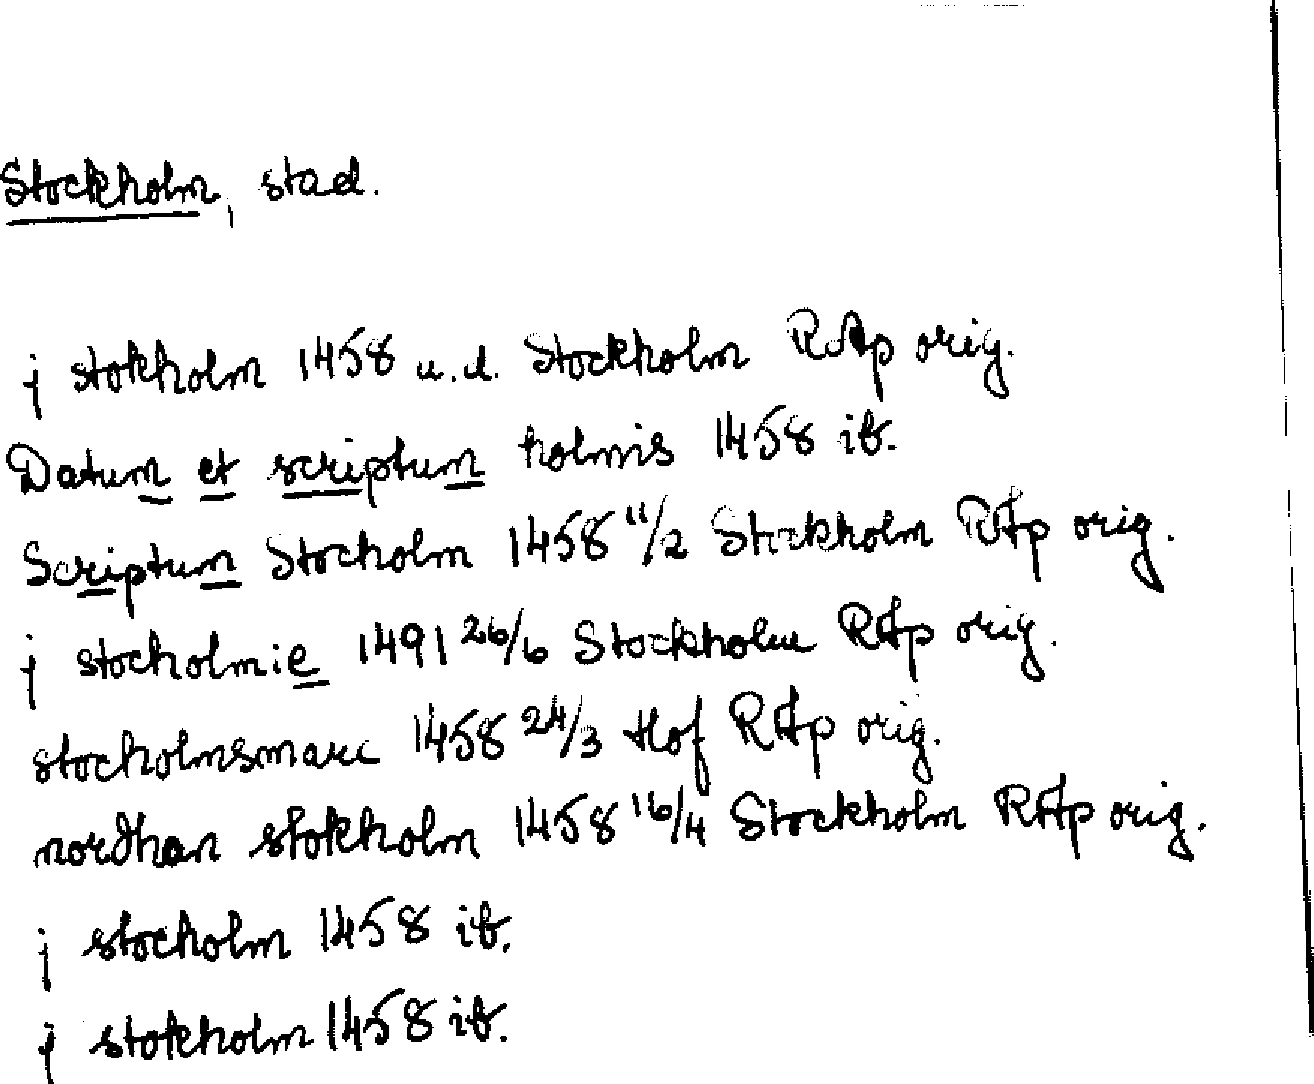 Stockholm, stad.
j stokholm 1458 u.d. Stockholm RAp orig.
Datum et scriptum holmis 1458 ib.
Scriptum Stocholm 1458 11/2 Stockholm RAp orig.
j stocholmie 1491 26/6 Stockholm RAp orig.
stocholmsmarc 1458 24/3 Hof RAp orig.
nordhan stokholm 1458 16/4 Stockholm RAp orig.
j stocholm 1458 ib.
j stokholm 1458 ib.